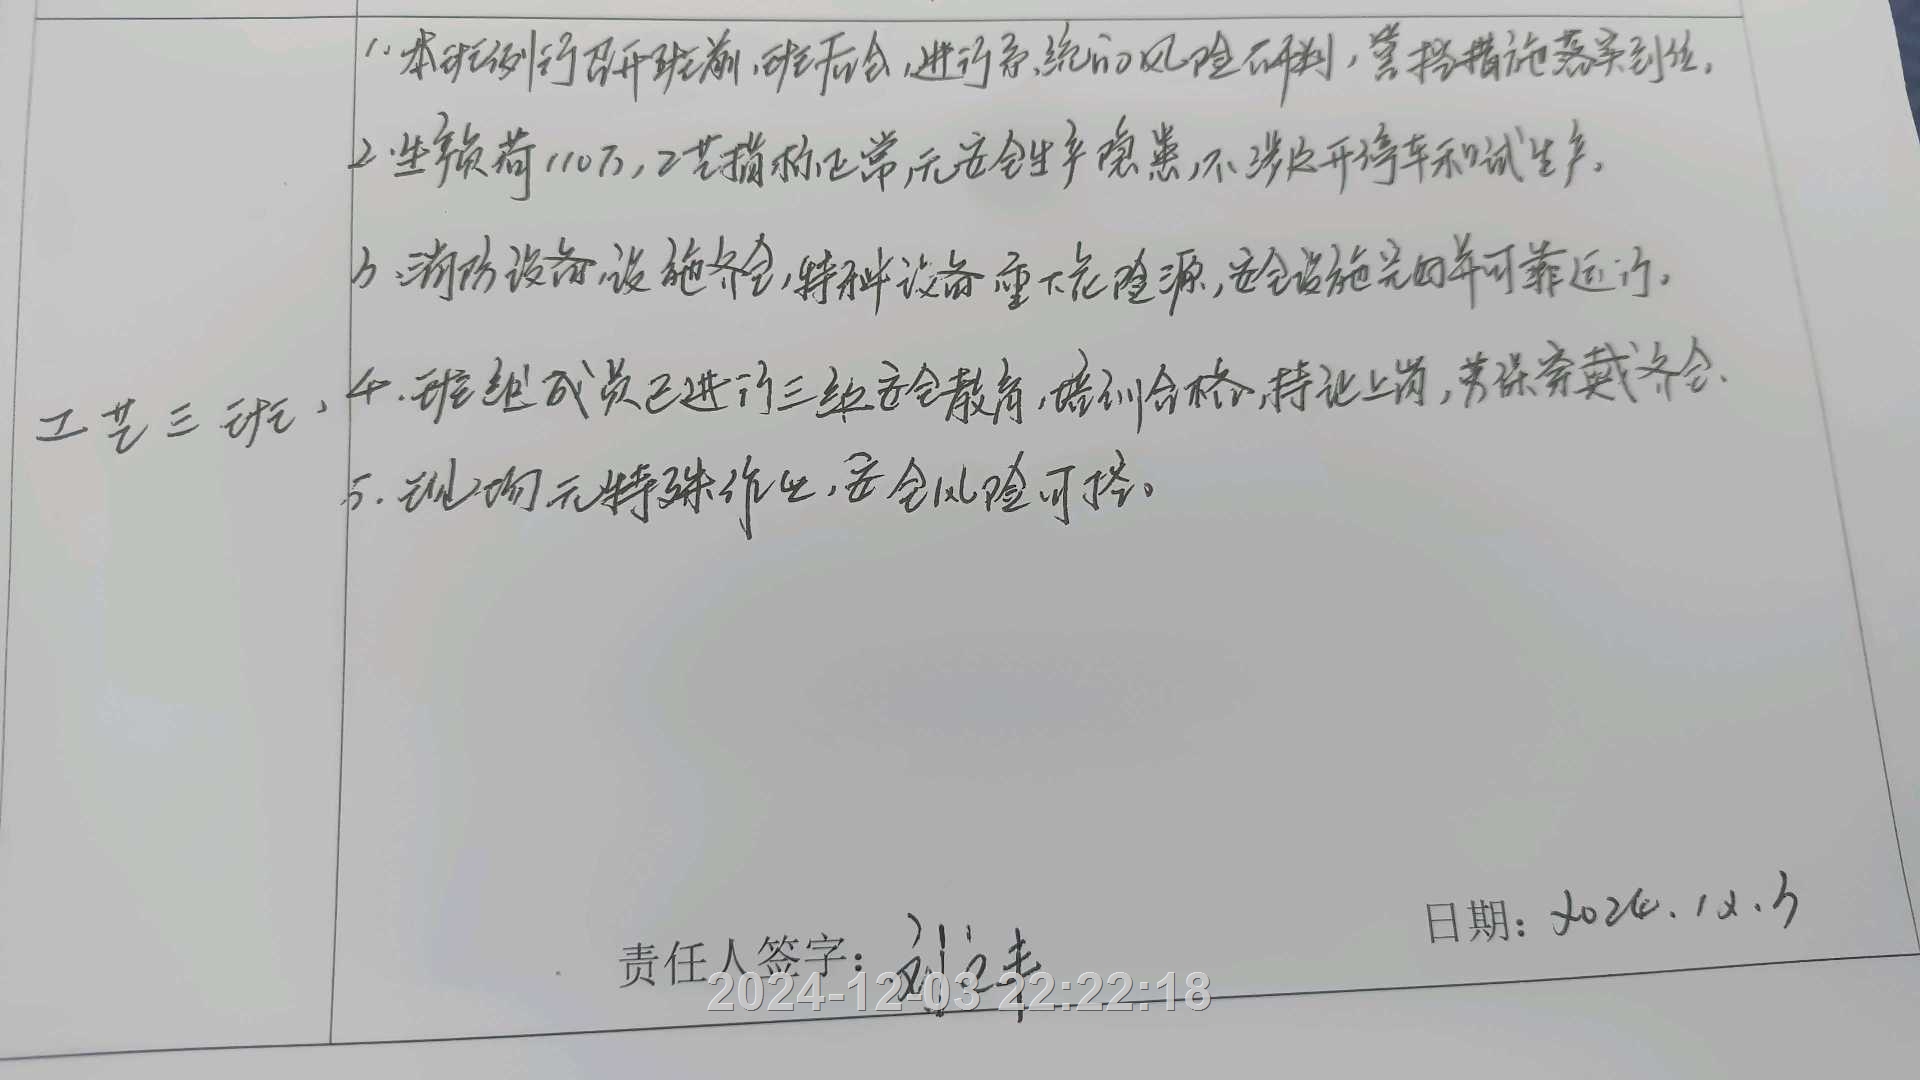 1.本班例行召开班前、班后会,进行系统的风险研判,管控措施落实到位。
2.生产负荷110万,工艺指标正常,无安全生产隐患,不涉及开停车和试生产。
3.消防设备、设施齐全,特种设备重大危险源,安全设施完好并可靠运行。
工艺三班、
4.班组成员已进行三级安全教育,培训合格,持证上岗,劳保穿戴齐全、
5.现场无特殊作业,安全风险可控。
日期:2024.12.3
责任人签字:刘立丰
2024-12-03 22:22:18